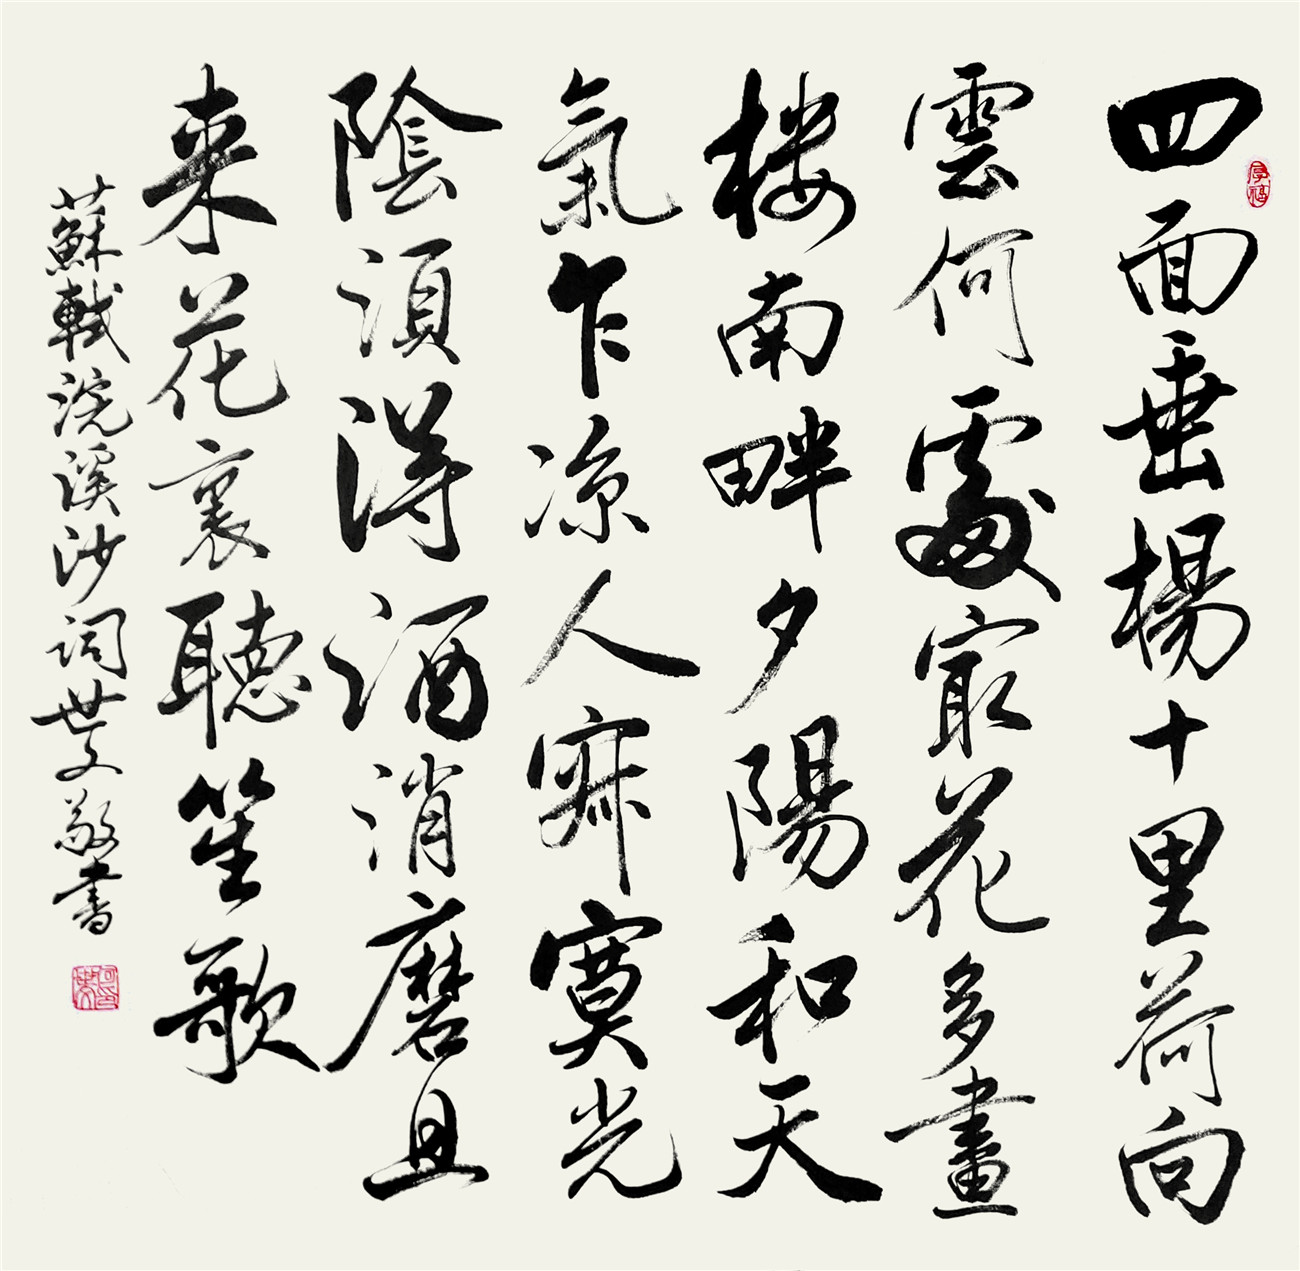 四面垂楊十里荷向
雲何處冣花多畫
楼南畔夕陽和天
氣乍凉人寂寞光
陰須得酒消磨且
来花裏聽笙歌
蘇軾浣溪沙詞世文敬書
厚福